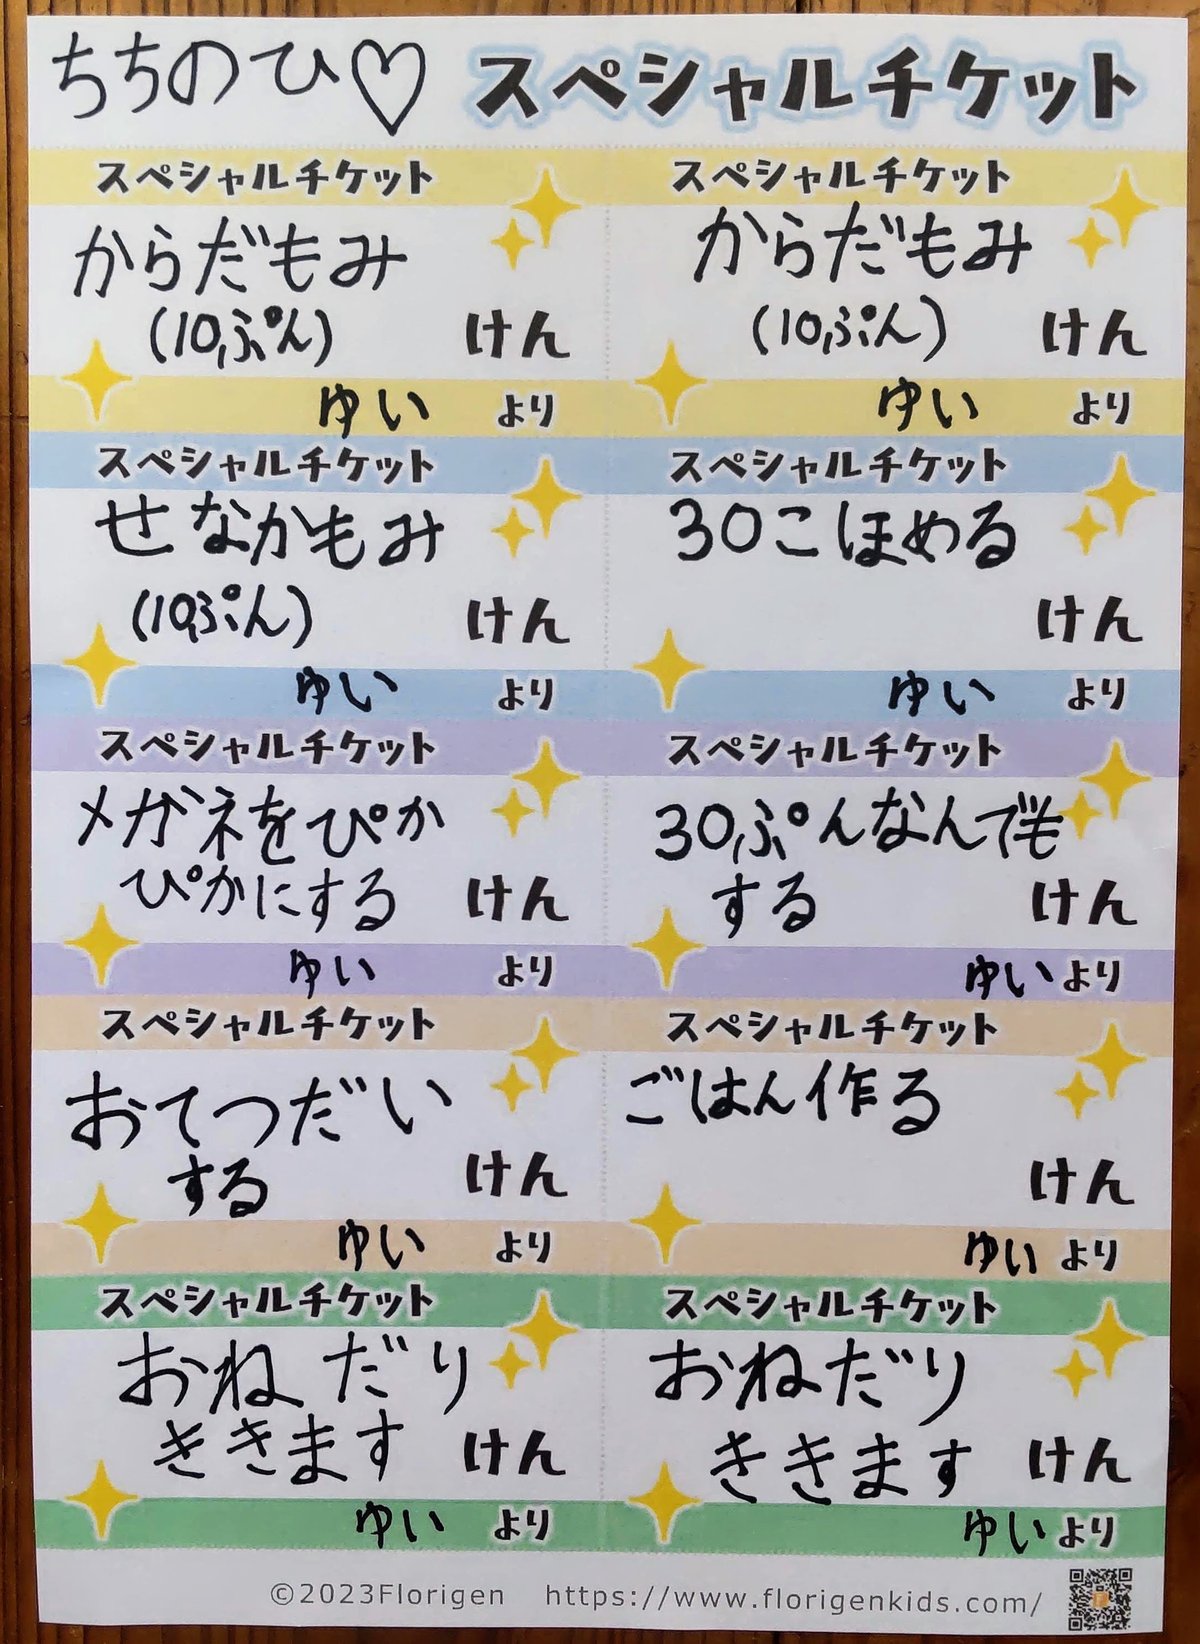 ちちのひ♡ スペシャルチケット
スペシャルチケット
からだもみ
(10ぷん) けん
ゆい より
スペシャルチケット
からだもみ
(10ぷん) けん
ゆい より
スペシャルチケット
せなかもみ
(10ぷん) けん
ゆい より
スペシャルチケット
30こほめる
けん
ゆい より
スペシャルチケット
メガネをぴか
ぴかにする けん
ゆい より
スペシャルチケット
30ぷんなんでも
する けん
ゆい より
スペシャルチケット
おてつだい
する けん
ゆい より
スペシャルチケット
ごはん作る
けん
ゆい より
スペシャルチケット
おねだり
ききます けん
ゆい より
スペシャルチケット
おねだり
ききます けん
ゆい より
©2023Florigen https://www.florigenkids.com/